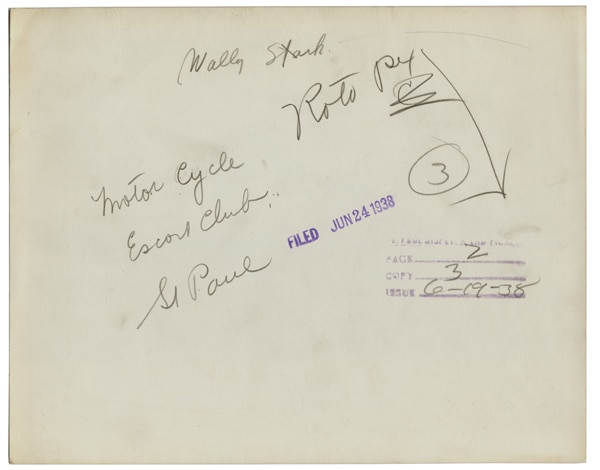 Wally Stark.
Roto py
3
Motor Cycle
Escort Club,
St Paul
FILED JUN 24 1938
PAGE 2
COPY 3
ISSUE 6-19-38